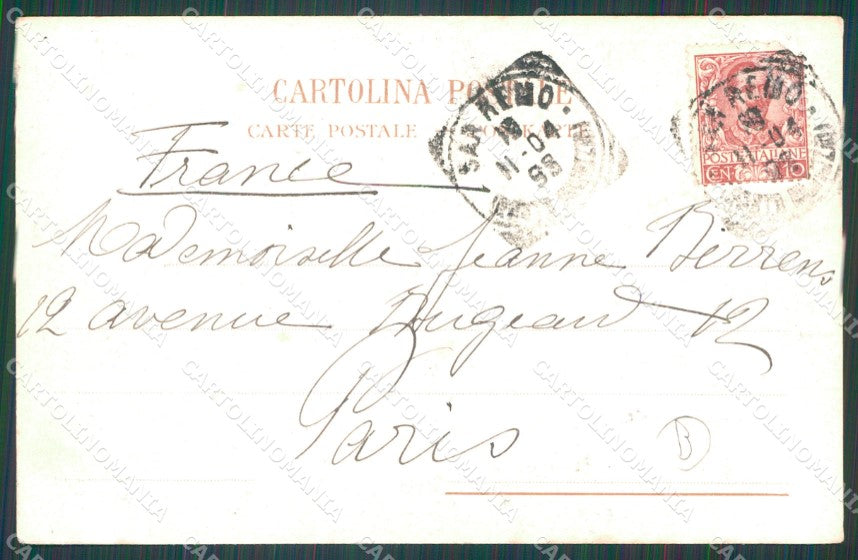 CARTOLINA POSTALE
CARTE POSTALE POSTKARTE
SAN REMO
11-04
SAN REMO
POSTE ITALIANE
CEN. 10
France
Mademoiselle Jeanne Berrens
12 avenue Bugeaud 12
Paris
B
CARTOLINOMANIA